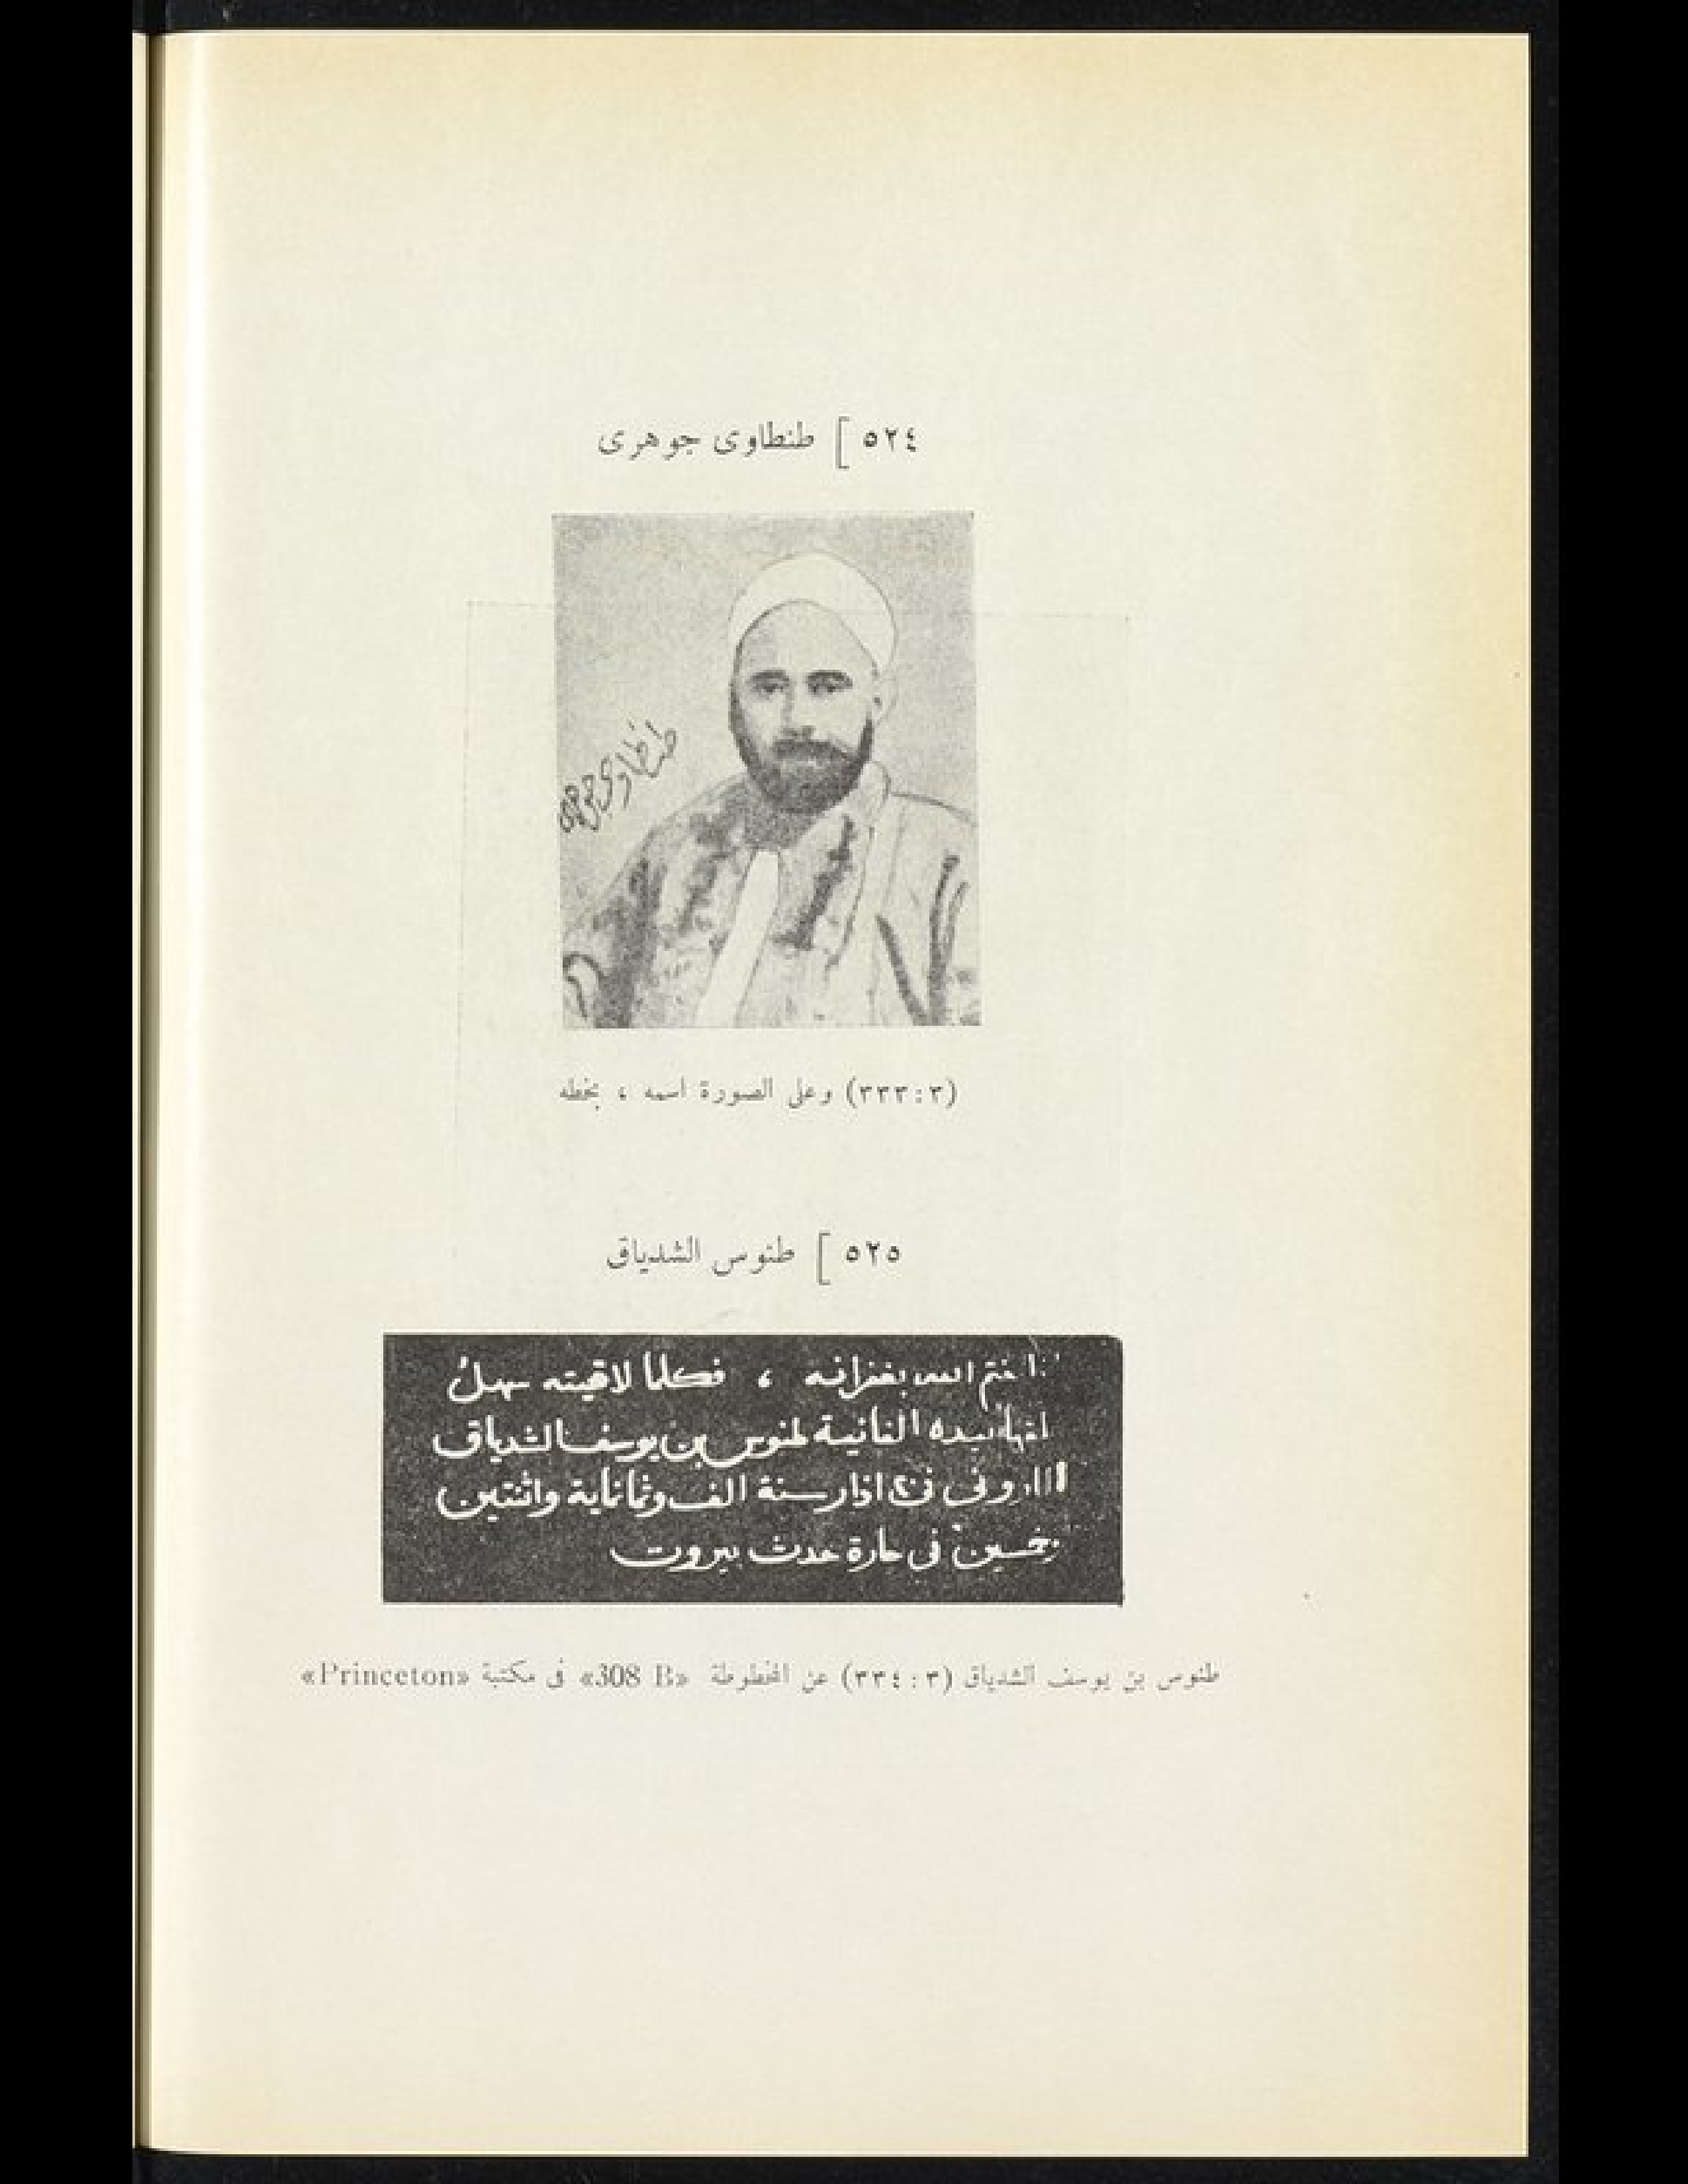 ٥٢٤ [ طنطاوى جوهرى
طنطاوى جوهرى
(٣ : ٣٣٣) وعلى الصورة اسمه ، بخطه
٥٢٥ [ طنوس الشدياق
ختم الله بغفرانه ، فكلما لاقيته سهل
بيده الفانية طنوس بن يوسف الشدياق
المارونى فى ٢٠ اذار سنة الف وثمانماية واثنتين
وخمسين فى حارة حدث بيروت
طنوس بن يوسف الشدياق (٣ : ٣٣٤) عن المخطوطة «308 B» فى مكتبة «Princeton»